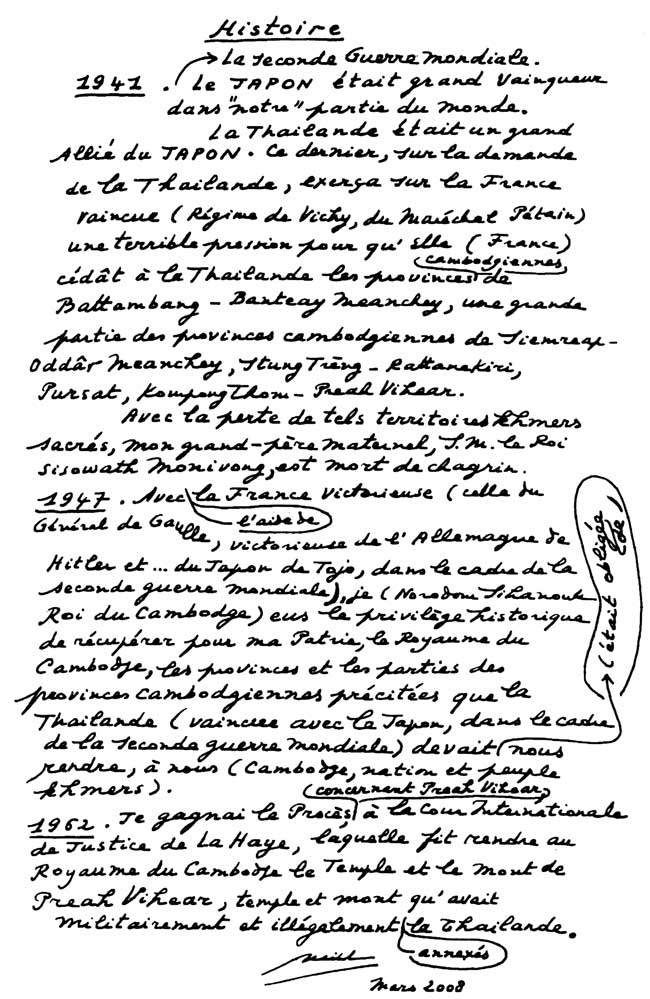 Histoire
La seconde Guerre Mondiale.
1941. Le JAPON était grand vainqueur
dans "notre" partie du monde.
La Thaïlande était un grand
Allié du JAPON. Ce dernier, sur la demande
de la Thaïlande, exerça sur la France
vaincue (Régime de Vichy, du Maréchal Pétain)
une terrible pression pour qu'elle (France)
cédât à la Thaïlande les provinces (cambodgiennes) de
Battambang - Banteay Meanchey, une grande
partie des provinces cambodgiennes de Siemreap -
Oddâr Meanchey, Stung Trèng - Rattanakiri,
Pursat, Kompong Thom - Preah Vihear.
Avec la perte de tels territoires khmers
sacrés, mon grand-père maternel, S.M. le Roi
Sisowath Monivong, est mort de chagrin.
1947. Avec l'aide de la France victorieuse (celle du
Général de Gaulle, victorieuse de l'Allemagne de
Hitler et ... du Japon de Tojo, dans le cadre de la
seconde guerre mondiale), je (Norodom Sihanouk
Roi du Cambodge) eus le privilège historique
de récupérer pour ma Patrie, le Royaume du
Cambodge, les provinces et les parties des
provinces cambodgiennes précitées que la
Thaïlande (vaincue avec le Japon, dans le cadre
de la seconde guerre mondiale) devait (était obligée de) nous
rendre, à nous (Cambodge, nation et peuple
khmers).
1962. Je gagnai le Procès (concernant Preah Vihear) à la Cour Internationale
de Justice de La Haye, laquelle fit rendre au
Royaume du Cambodge le Temple et le mont de
Preah Vihear, temple et mont qu'avait
militairement et illégalement annexés la Thaïlande.
Mars 2008